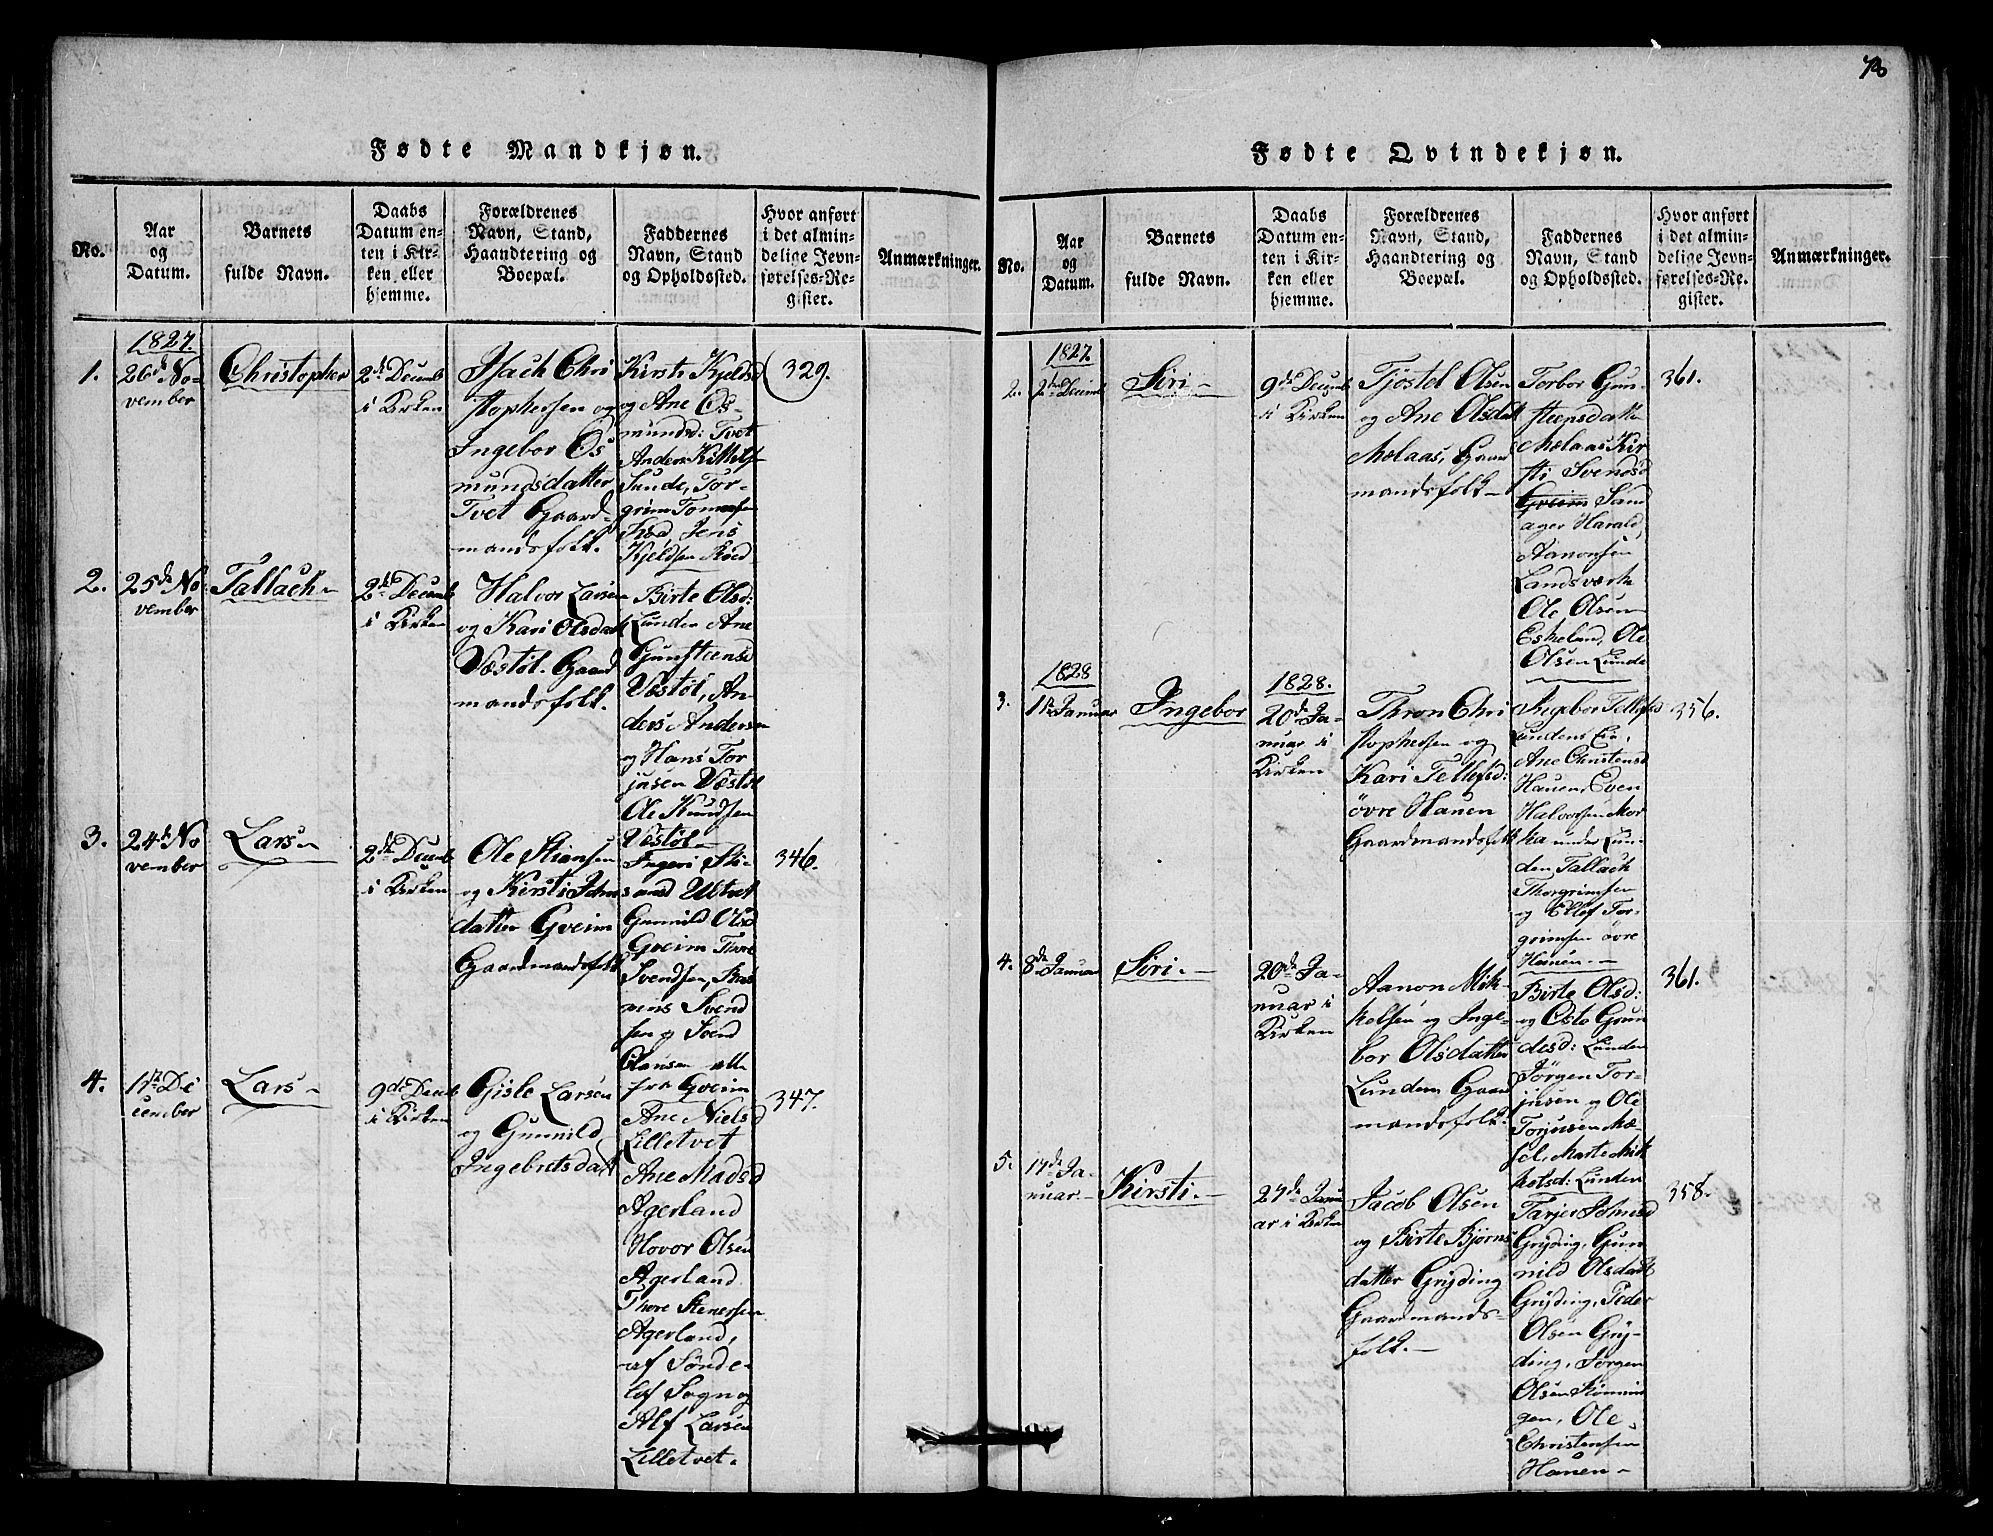 78
Fødte Mandkjøn.
No.
Aar
og
Datum.
Barnets
fulde Navn.
Daabs
Datum en-
ten i Kir-
ken eller
hjemme.
Forældrenes
Navn, Stand,
Haandtering og
Boepæl.
Faddernes
Navn, Stand
og Opholdssted.
Hvor anført
i det almin-
delige Jevn-
førelses-Re-
gister.
Anmærkninger.
1.
1827.
26de No-
vember
Christopher
2de Decemb
i Kirken
Isach Chri
stophersen og
Ingebor Os
mundsdatter
Tvet Gaard-
mandsfolk.
Kirsti Kjelsd
og Ane Os-
mundsd: Tvet
Anders Kittels
Sunde, Tor-
grim Tomesen
Röd, Jens
Kjeldsen Röed
329.
2.
25de No-
vember
Tallach
2de Decemb
i Kirken
Halvor Larsen
og Kari Olsdatt
Væstøl. Gaard
mandsfolk.
Birte Olsd:
Lunden Ane
Gunsteensd
Væstøl, An-
ders Andersen
og Hans Tor
jusen Væstøl
Ole Knudsen
Væstøl
3.
24de No
vember
Lars
2de Decemb
i Kirken
Ole Stiansen
og Kirsti Johns
datter Gveim
Gaardmandsfolk
Ingeri Sti-
ansd Ultvet
Gunnild Olsd
Gveim Thore
Svendsen,
Svend
sen og Svend
Olansen alle
fra Gveim
346.
4.
17de De
cember
Lars
9de Decemb
i Kirken
Gisle Larsen
og Gunnild
Ingebretsdatt
Ane Nielsd
Lilletvet
Ane Madsd
Agerland
Hovor Olsen
Agerland
Thore Stenersen
Agerland,
af Sønde-
löf Sogn og
Alf Larsen
Lilletvet.
347.
Fødte Qvindekjøn.
No.
Aar
og
Datum.
Barnets
fulde Navn.
Daabs
Datum en-
ten i Kir-
ken eller
hjemme.
Forældrenes
Navn, Stand,
Haandtering og
Boepæl.
Faddernes
Navn, Stand
og Opholdssted.
Hvor anført
i det almin-
delige Jevn-
førelses-Re-
gister.
Anmærkninger.
2.
1827
2de Decemb
Siri
9de Decemb
i Kirken
Tjøstel Olsen
og Ane Olsdatt
Mælaas, Gaard
mandsfolk
Torbor Gun-
steensdatter
Mælaas Kir-
sti Svendsd
Gveim Sand
ager Harald
Aanonsen
Landsværk
Ole Olsen
Eskeland, Ole
Olsen Lunde
361.
3.
1828
11te Januar
Ingebor
1828.
20de Ja-
nuar i
Kirken
Thron Chri
stophersen og
Kari Tellefsd:
övre Hauen
Gaardmandsfolk
Ingebor Tellefsd
Lundens Eie,
Ane Christensd
Hauen, Even
Halvorsen Mör
ka under Lun-
den Tallach
Thorgrimsen
og Ellef Tor-
grimsen övre
Hauen.
356.
4.
8de Januar
Siri.
20de Ja-
nuar i
Kirken
Aanon Mik-
kelsen og Inge-
bor Olsdatter
Lunden, Gaard
mandsfolk.
Birte Olsd:
og Osto Gun
desd: Lunden
Jörgen Tor-
jusen og Ole
Torjusen Mæ-
sel, Marte Mik
kelsd: Lunden
361.
5.
17de Ja-
nuar
Kirsti.
27de Janu
ar i Kirken
Jacob Olsen
og Birte Bjørns
datter Gryding
Gaardmands-
folk.
Tarjer Johnsd
Gryding, Gun
nild Olsdatt
Gryding, Peder
Olsen Gry-
ding, Jörgen
Olsen Rönnin
gen, Ole
Christensen
Hauen
358.